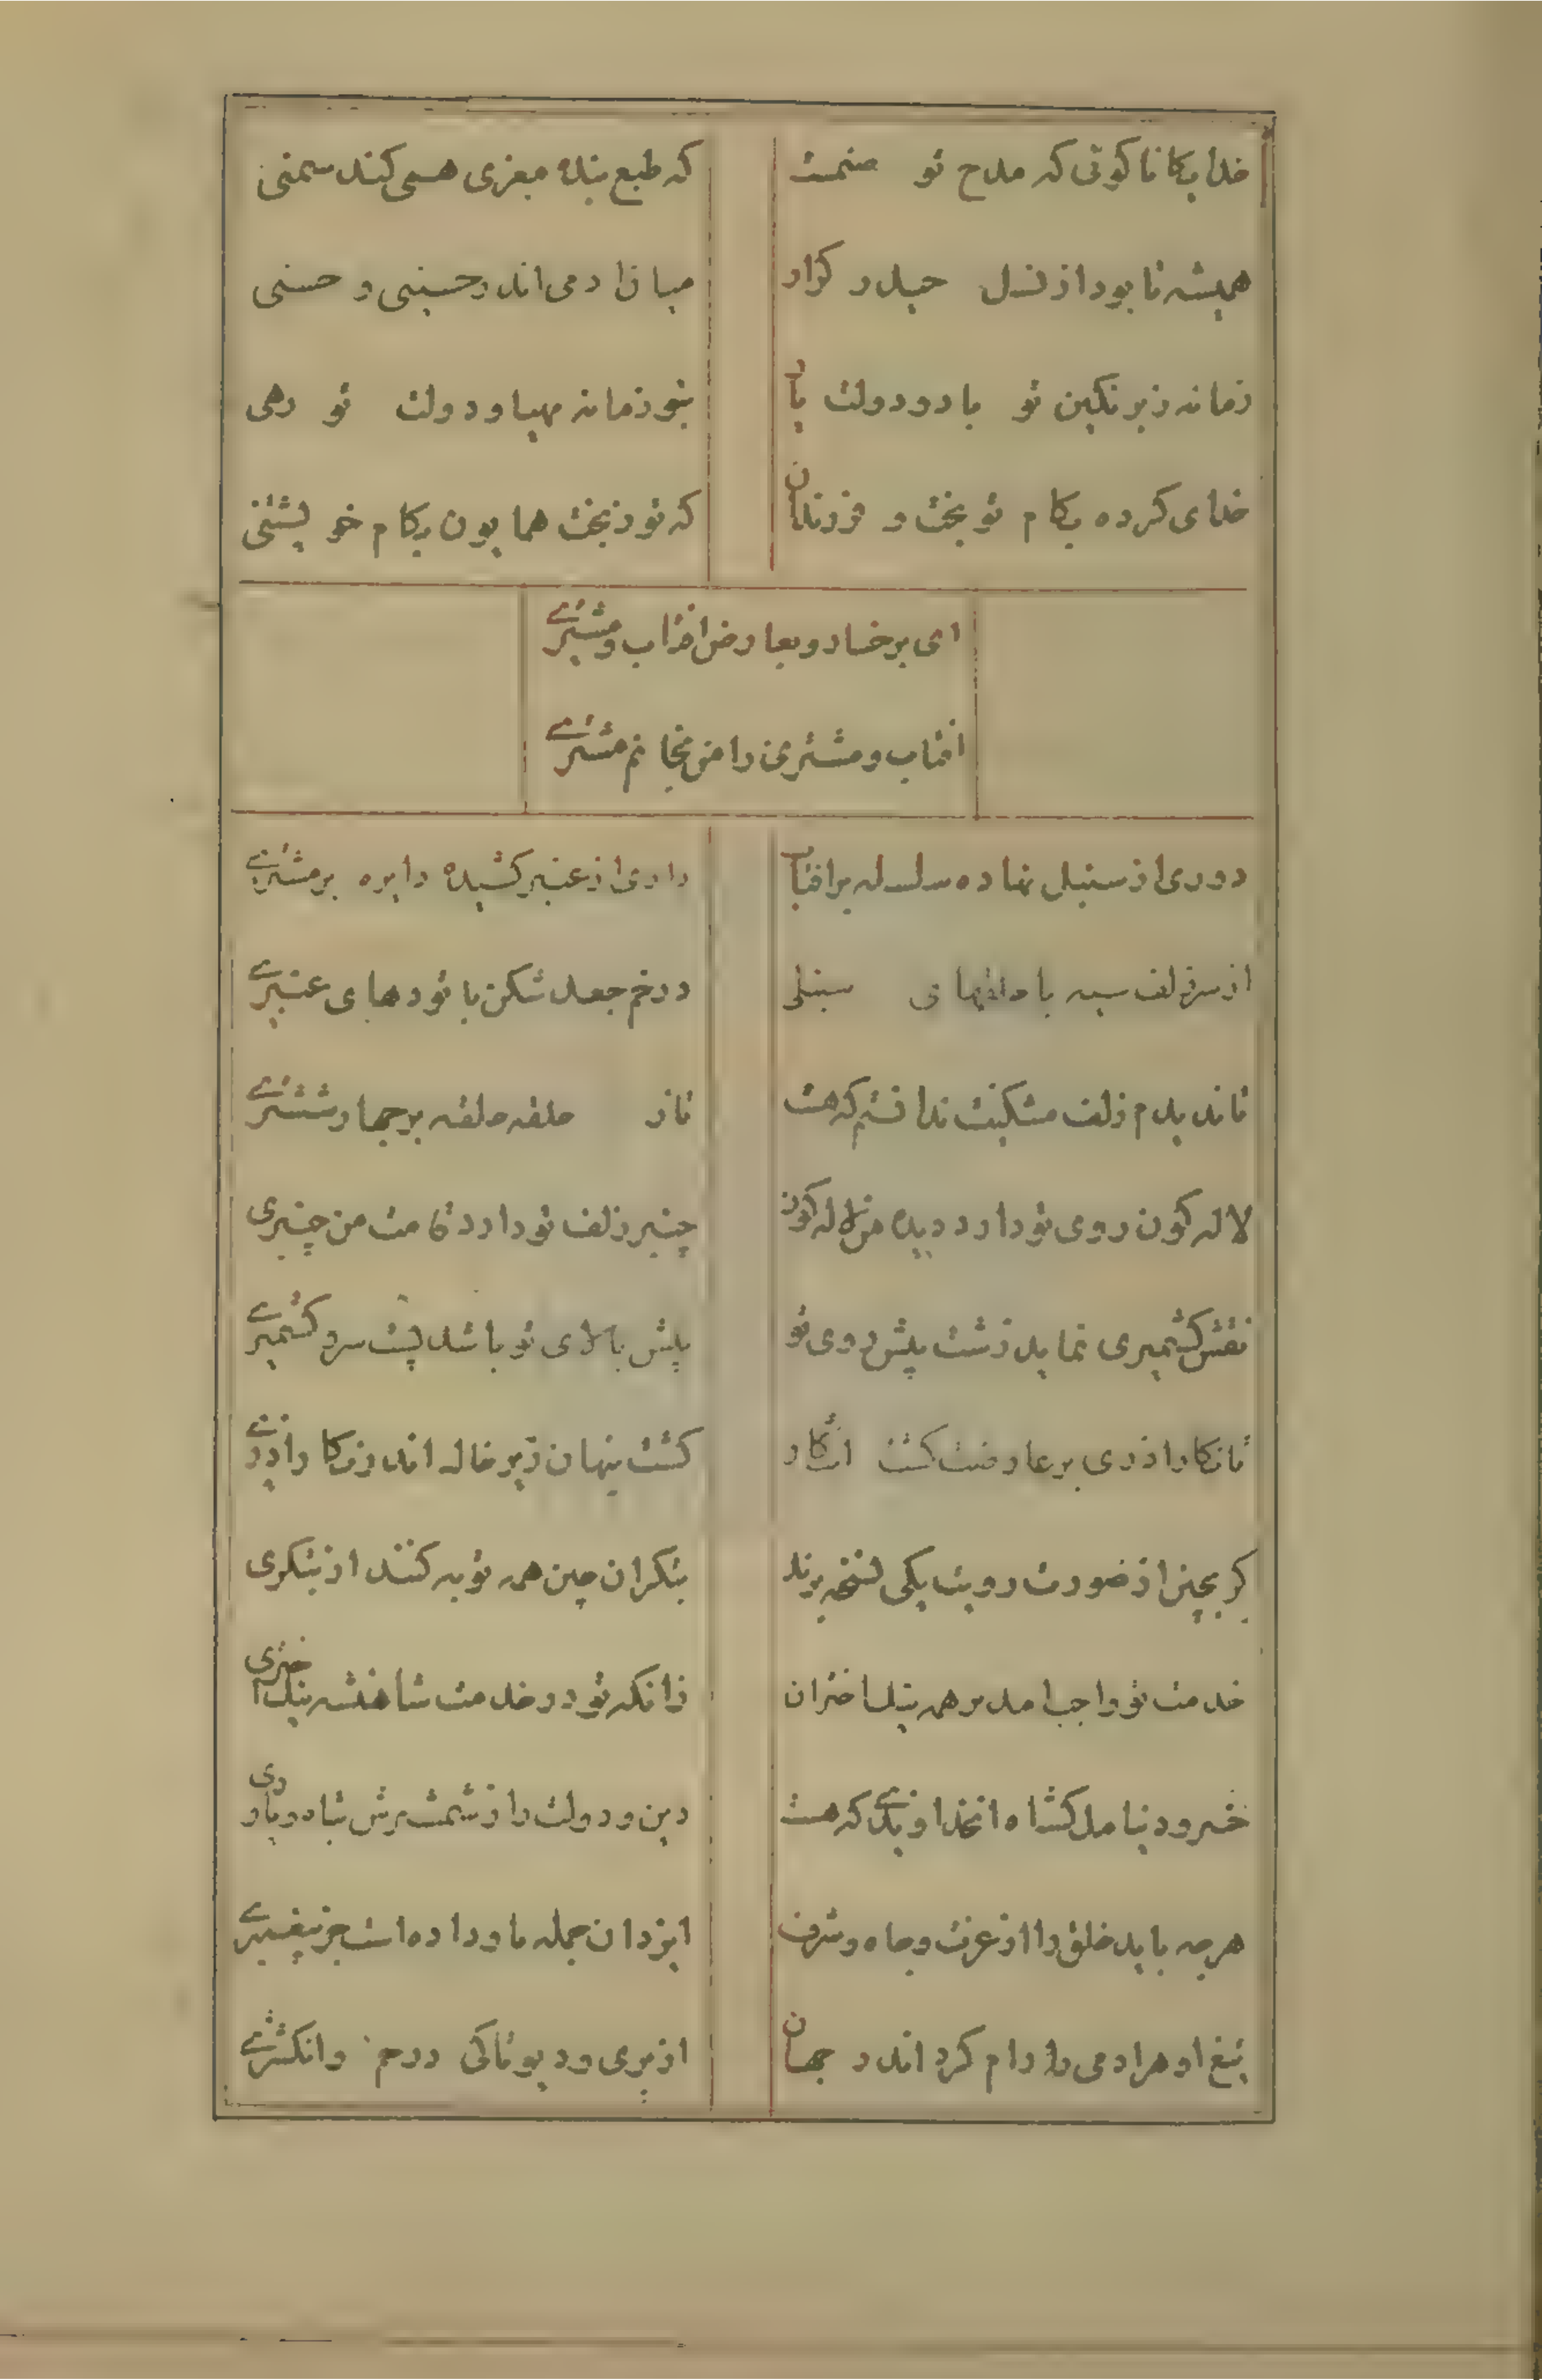 خدایکانا کوئی که مدح تو صنمست که طبع بنده معزی همی کند سمنی
همیشه تا بود از نسل حیدر کرار میان ادمی اندر حسینی و حسنی
زمانه زیر نکین تو باد و دولت یار بتو زمانه مهیا و دولت تو رهی
خدای کرده بکام تو بخت و فرزندان که تو ز بخت همایون بکام خویشتنی
ای برخسار و بعارض افتاب و مشتری
افتاب و مشتری را من بجانم مشتری
دوری از سنبل نهاده سلسله بر افتاب داری از عنبر کشیده دایره بر مشتری
از سر زلف سیه با حلقهای سنبلی در خم جعد شکن با تودهای عنبری
تا ندیدم زلف مشکینت ندانستم که هست تاز حلقه حلقه بر جهار ششتری
لاله کون روی تو دارد دیده من لاله کون چنبر زلف تو دارد قامت من چنبری
نقش کشمیری نماید زشت پیش روی تو پیش بالای تو باشد پست سرو کشمری
تا نکار اذری بر عارضت کشت اشکار کشت پنهان زیر خاک اندر نکار اذری
کر بچین از صورت رویت یکی نسخه برند بتکران چین همه توبه کنند از بتکری
خدمت تو واجب امد بر همه نیک اختران زانکه تو در خدمت شاهنشه نیک اختری
خسرو دنیا ملکشاه ان خداوندی که هست دین و دولت را ز شمشیرش پناه و یاوری
هرجه باید خلق را از عزت و جاه و شرف ایزد ان جمله باو داده است جز پیغمبری
تیغ او هر ادمی را رام کرد اندر جهان از پری و دیو تا کی درم وانکشتری